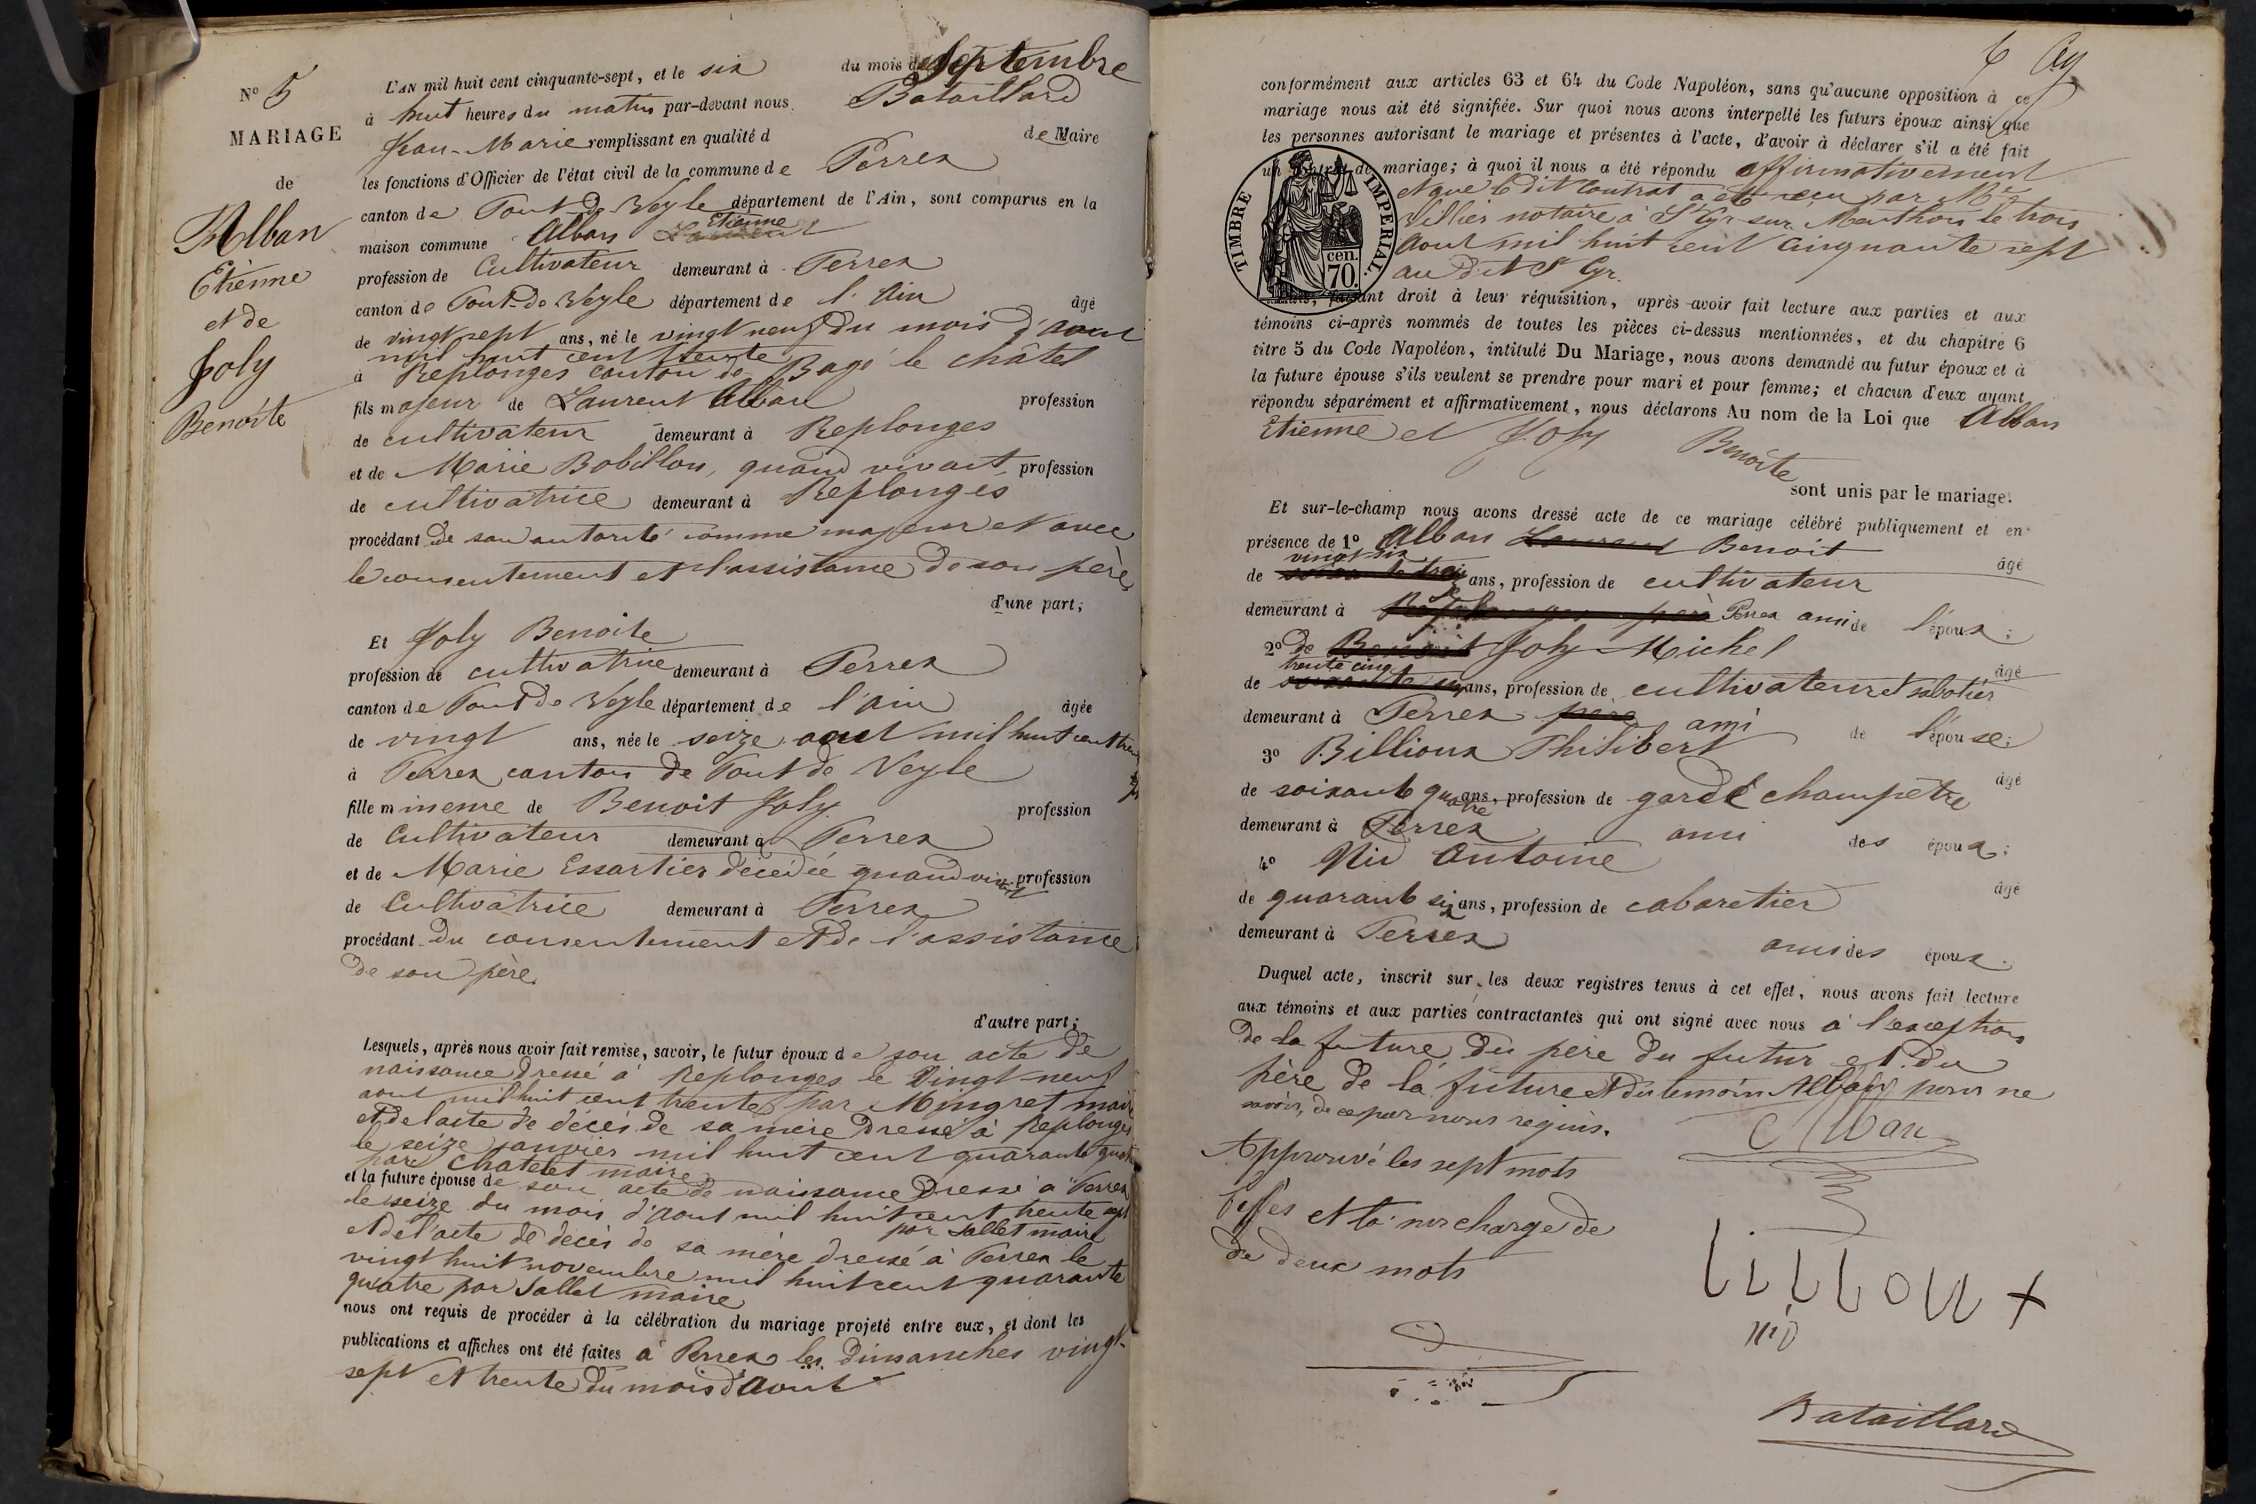 N° 5
MARIAGE
de
Alban
Etienne
et de
Joly
Benoite
L'AN mil huit cent cinquante-sept, et le six du mois de Septembre
à huit heures du matin par-devant nous Bataillard
Jean-Marie remplissant en qualité d de Maire
les fonctions d'Officier de l'état civil de la commune de Perrex
canton de Pont-de-Veyle département de l'Ain, sont comparus en la
maison commune Alban Etienne
profession de Cultivateur demeurant à Perrex
canton de Pont-de-Veyle département de l'Ain âgé
de vingt sept ans, né le vingt neuf du mois d'aout
mil huit cent trente
à Replonges canton de Bagé le châtel
fils majeur de Laurent Alban profession
de cultivateur demeurant à Replonges
et de Marie Bobillon, quand vivait profession
de cultivatrice demeurant à Replonges
procédant de son autorité comme majeur et avec
le consentement et l'assistance de son père
d'une part;
Et Joly Benoite
profession de cultivatrice demeurant à Perrex
canton de Pont de Veyle département de l'Ain âgée
de vingt ans, née le seize aout mil huit cent trente
à Perrex canton de Pont de Veyle
fille mineure de Benoit Joly profession
de Cultivateur demeurant à Perrex
et de Marie Essartier décédée quand vivait profession
de Cultivatrice demeurant à Perrex
procédant du consentement et de l'assistance
de son père
d'autre part;
Lesquels, après nous avoir fait remise, savoir, le futur époux de son acte de
naissance dressé à Replonges le Vingt neuf
aout mil huit cent trente par Mingret maire
et de l'acte de décès de sa mère dressé à Replonges
le seize janvier mil huit cent quarante quatre
par Chatelet maire
et la future épouse de son acte de naissance dressé à Perrex
le seize du mois d'aout mil huit cent trente sept
par Sallet maire
et de l'acte de décès de sa mère dressé à Perrex le
vingt huit novembre mil huit cent quarante
quatre par Sallet maire
nous ont requis de procéder à la célébration du mariage projeté entre eux, et dont les
publications et affiches ont été faites à Perrex les Dimanches vingt-
sept et trente du mois d'aout
6
conformément aux articles 63 et 64 du Code Napoléon, sans qu'aucune opposition à ce
mariage nous ait été signifiée. Sur quoi nous avons interpellé les futurs époux ainsi que
les personnes autorisant le mariage et présentes à l'acte, d'avoir à déclarer s'il a été fait
un contrat de mariage; à quoi il nous a été répondu affirmativement
et que le dit contrat a été reçu par Me
notaire à St Cyr sur Menthon le trois
aout mil huit cent cinquante sept
au dit St Cyr.
TIMBRE IMPERIAL.
cen.
70.
faisant droit à leur réquisition, après avoir fait lecture aux parties et aux
témoins ci-après nommés de toutes les pièces ci-dessus mentionnées, et du chapitre 6
titre 5 du Code Napoléon, intitulé Du Mariage, nous avons demandé au futur époux et à
la future épouse s'ils veulent se prendre pour mari et pour femme; et chacun d'eux ayant
répondu séparément et affirmativement, nous déclarons Au nom de la Loi que Alban
Etienne et Joly Benoite
sont unis par le mariage.
Et sur-le-champ nous avons dressé acte de ce mariage célébré publiquement et en
présence de 1° Alban Laurent Benoit
de vingt six ans, profession de cultivateur âgé
demeurant à Perrex ami de l'époux;
2° de Benoit Joly Michel
de trente cinq ans, profession de cultivateur et sabotier âgé
demeurant à Perrex père ami de l'épouse;
3° Billioux Philibert
de soixante quatre ans, profession de garde champêtre âgé
demeurant à Perrex ami des époux;
4° Nid Antoine
de quarante six ans, profession de cabaretier âgé
demeurant à Perrex ami des époux.
Duquel acte, inscrit sur les deux registres tenus à cet effet, nous avons fait lecture
aux témoins et aux parties contractantes qui ont signé avec nous à l'exception
de la future du père du futur et du
père de la future et du témoin Alban pour ne
savoir, de ce par nous requis.
Approuvé les sept mots
et la surcharge de
de deux mots
Alban
nid
Bataillard